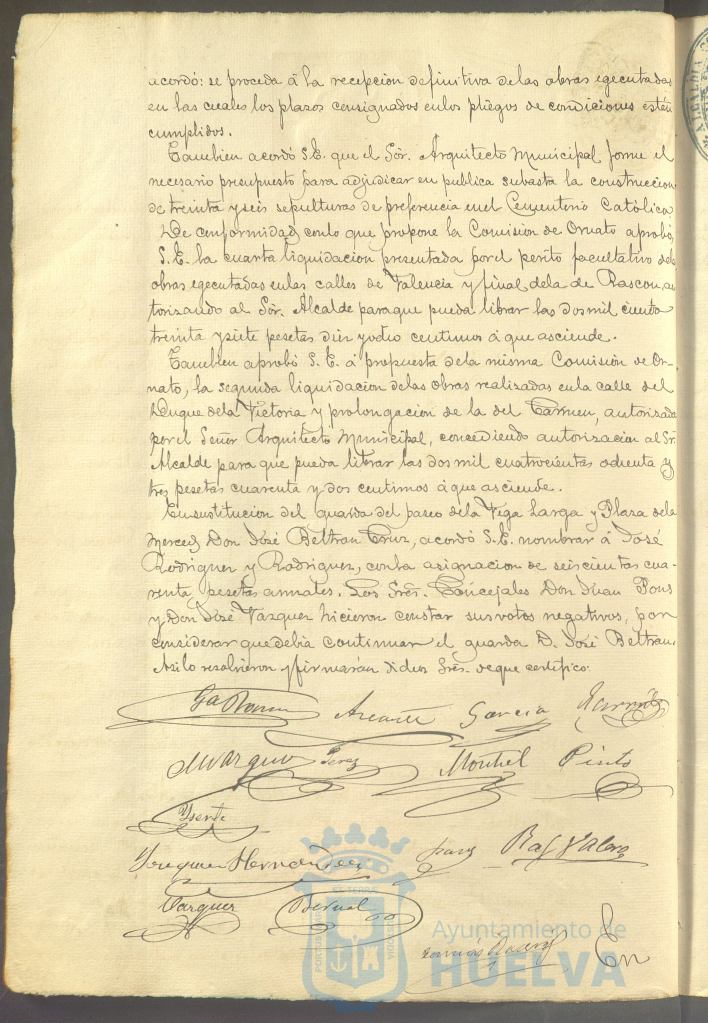 acordó: se proceda á la recepcion definitiva de las obras egecutadas
en las cuales los plazos consignados en los pliegos de condiciones estén
cumplidos.
Tambien acordó S.E. que el Sór. Arquitecto Municipal forme el
necesario presupuesto para adjudicar en publica subasta la construccion
de treinta y seis sepulturas de preferencia en el Cementerio Católico
De conformidad con lo que propone la Comision de Ornato aprobó
S.E. la cuarta liquidacion presentada por el perito facultativo de las
obras egecutadas en las calles de Valencia y final de la de Rascon, au
torizando al Sór. Alcalde para que pueda librar las dos mil ciento
treinta y siete pesetas diez y ocho centimos á que asciende.
Tambien aprobó S.E. á propuesta de la misma Comision de Or-
nato, la segunda liquidacion de las obras realizadas en la calle del
Duque de la Victoria y prolongacion de la del Carmen, autorizada
por el Señor Arquitecto Municipal, concediendo autorizacion al Sr.
Alcalde para que pueda librar las dos mil cuatrocientas ochenta y
tres pesetas cuarenta y dos centimos á que asciende.
En sustitucion del guarda del paseo de la Vega Larga y Plaza de la
Merced Don José Beltran Cruz, acordó S.E. nombrar á José
Rodriguez y Rodriguez, con la asignacion de seiscientas cua-
renta pesetas anuales. Los Sres. Concejales Don Juan Pons
y Don José Vazquez hicieron constar sus votos negativos, por
considerar que debia continuar el guarda D. José Beltran.
Asi lo resolvieron y firmarán dichos Sres. de que certifico.
Garcia
Marquez Perez Montiel Pinto
Hernandez Pons
Vazquez Bernal
Ayuntamiento de
HUELVA